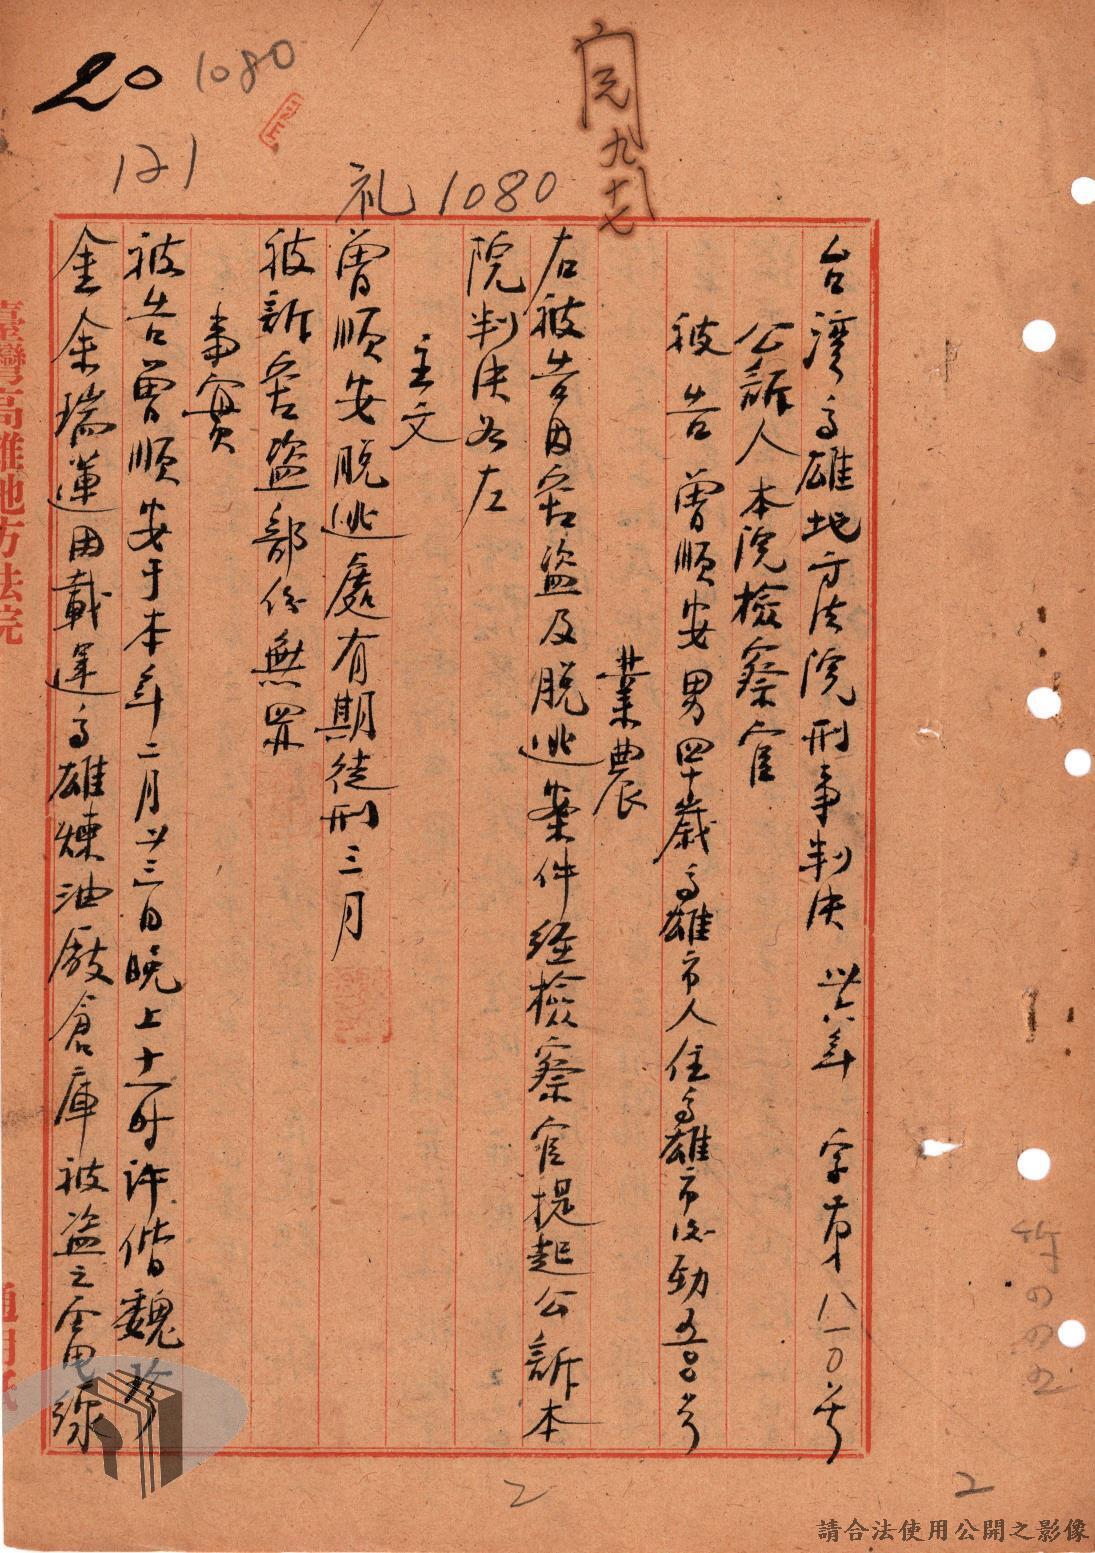 20
1080
121
礼 1080
元九十七
台灣高雄地方法院刑事判決 卅六年 字第八一〇号
公訴人本院檢察官
被告 曾順安男四十歲高雄市人住高雄市 五〇号
業農
右被告因窃盗及脱逃案件経檢察官提起公訴本
院判決如左
主文
曾順安脱逃處有期徒刑三月
被訴窃盗部份無罪
事實
被告曾順安于本年二月廿三日晚上十一时许偕魏
金余瑞運用載運高雄煉油廠倉庫被盗之 電線
臺灣高雄地方法院
通用紙
竹
2
2
請合法使用公開之影像